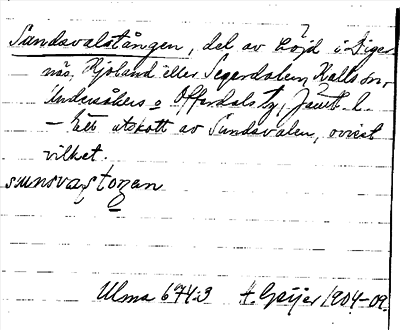 Sundsvalstången, del av höjd i Diger
näs, Hjoland eller Segerdalen, Halls sn,
Undersåkers o Offerdals tg, Jämt. l.
– Ett utskott av Sundsvalen, ovisst
vilket.
sunsvastozen
Ulma 674:3 H. Geijer 1904-09.